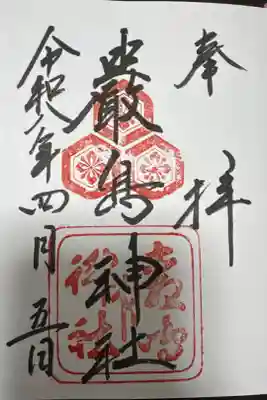 奉拝
嚴島神社
令和八年四月五日